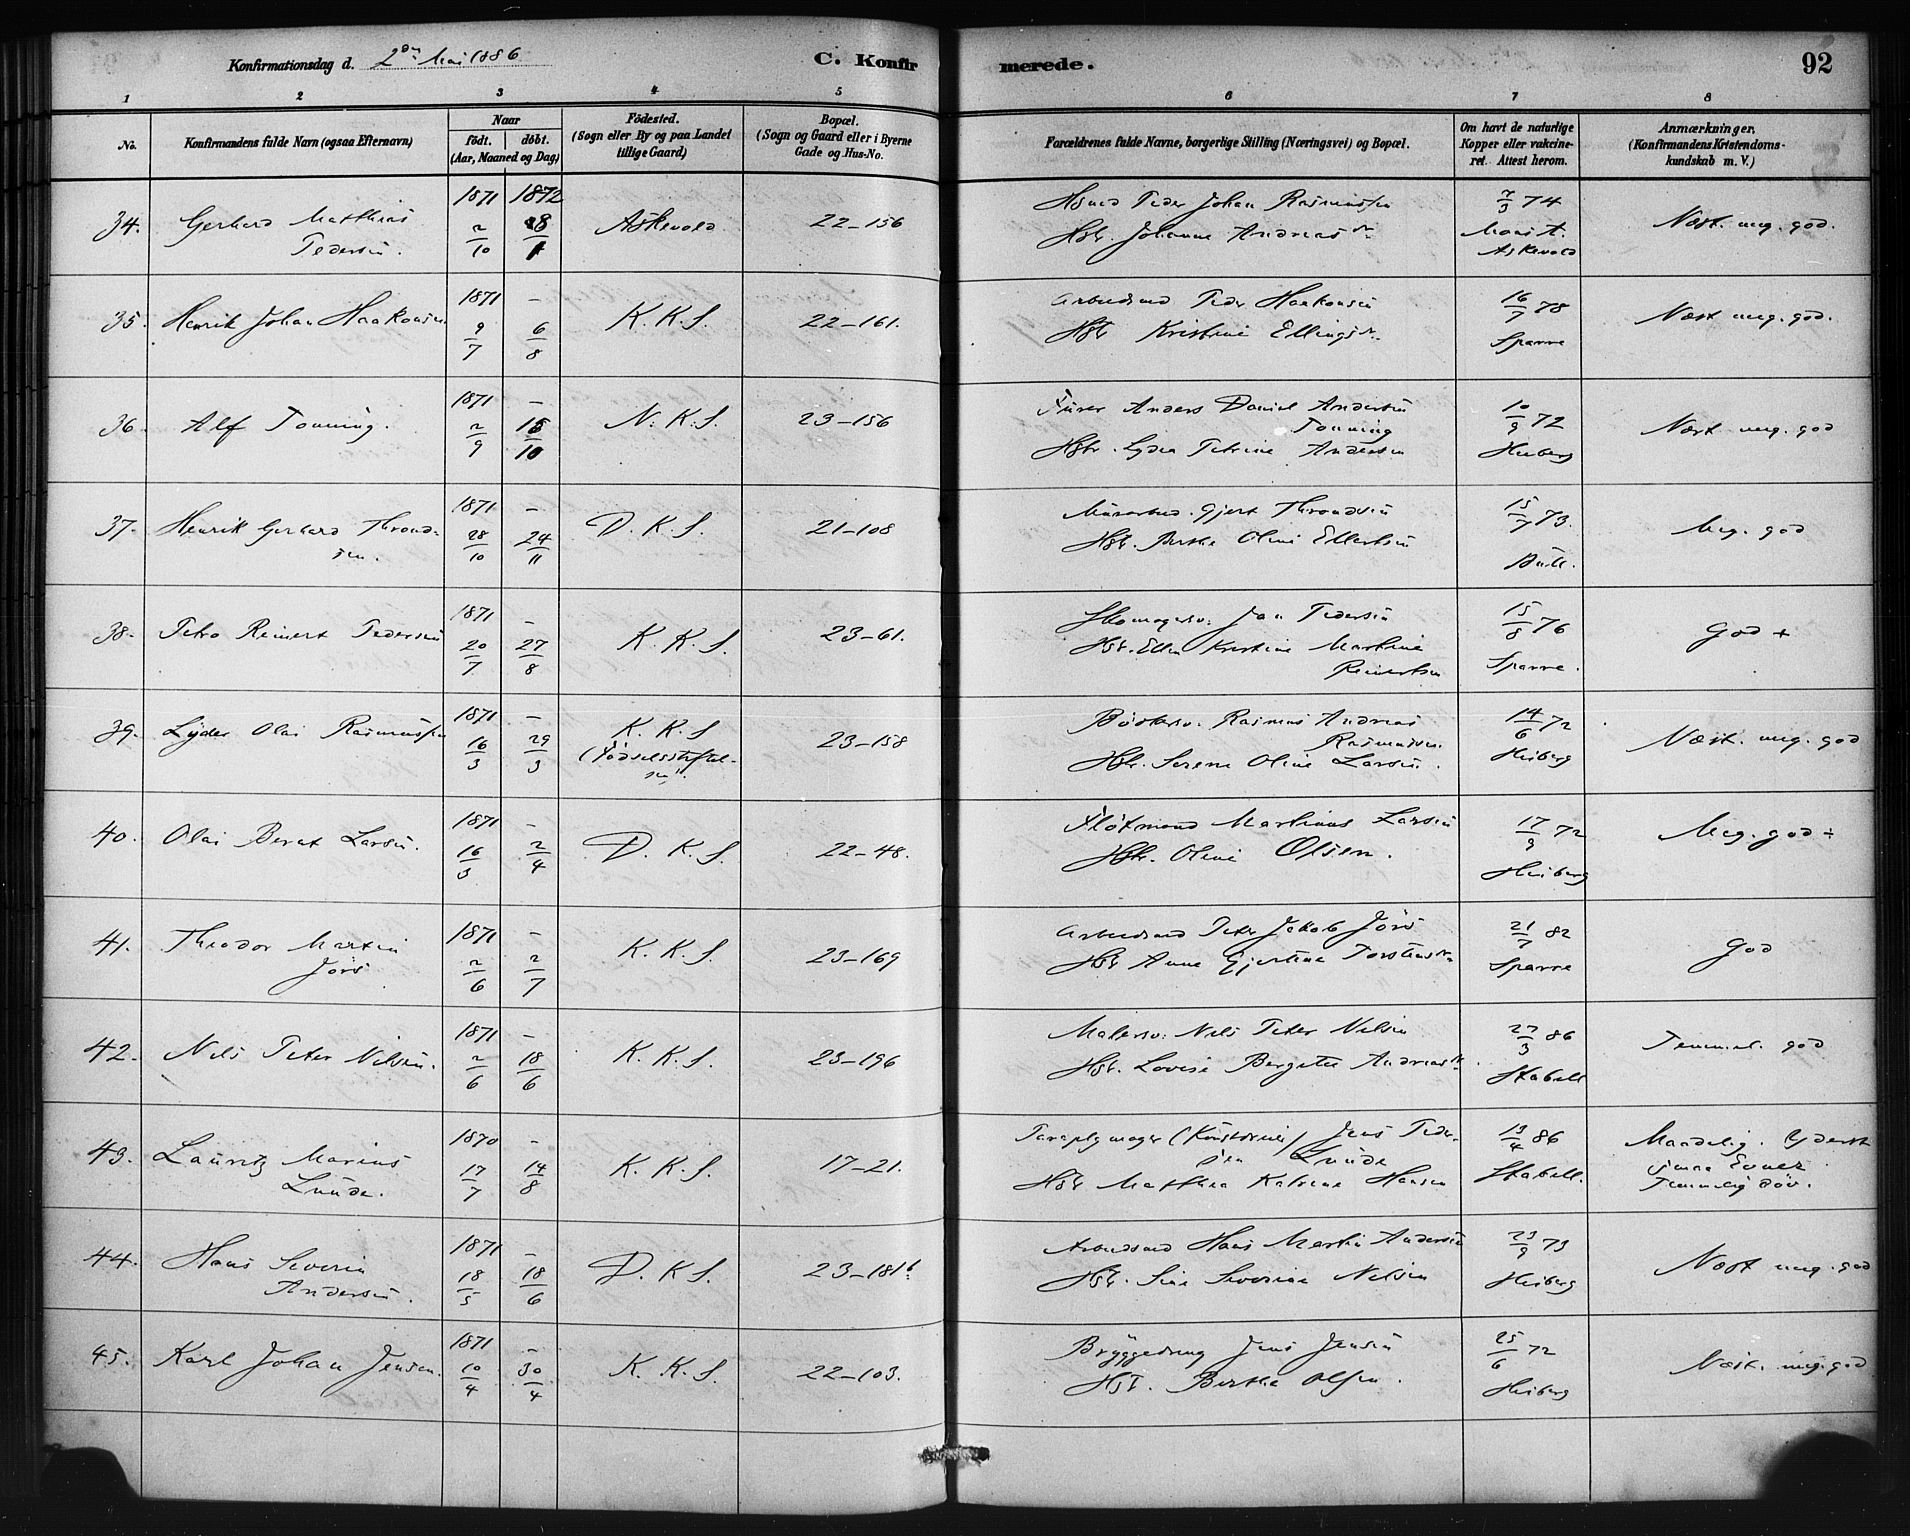 Konfirmationsdag d. 2den Mai 1886
C. Konfirmerede.
92
1 2 3 4 5 6 7 8
No.
Konfirmandens fulde Navn (ogsaa Efternavn)
Naar
født. døbt.
(Aar, Maaned og Dag)
Fødested.
(Sogn eller By og paa Landet
tillige Gaard)
Bopæl.
(Sogn og Gaard eller i Byerne
Gade og Hus-No.
Forældrenes fulde Navne, borgerlige Stilling (Næringsvei) og Bopæl.
Om havt de naturlige
Kopper eller vakcine-
ret. Attest herom.
Anmærkninger.
(Konfirmandens Kristendoms-
kundskab m. V.)
34. Gerhard Matthias
Pedersen.
1871 2/10
1872 28/1
Askevold
22-156
Hsmd Peder Johan Rasmussen
Hstr. Johanne Andreasdr
7/3 74
Mons A.
Askevold
Næst. meg. god.
35. Henrik Johan Haakonsen
1871 9/7
– 6/8
K. K. S.
22-161.
Arbeidsmd Peder Haakonsen
Hstr Kristine Ellingsdr.
16/7 78
Sparre
Næst meg. god.
36. Alf Tonning.
1871 2/9
– 15/10
N. K. S.
23-156
Furer Anders Daniel Andersen
Tonning
Hstr. Lydia Petrine Andersen
10/9 72
Heiberg
Næst meg. god
37. Henrik Gerhard Thrond-
sen.
1871 28/10
– 24/11
D. K. S.
21-108
Murarbd. Gjert Throndsen
Hstr. Berthe Oline Ellertsen
15/7 73.
Bull.
Meg. god
38. Petro Reinert Pedersen
1871 20/7
– 27/8
K. K. S.
23-61.
Skomagersv. Jan Pedersen
Hstr. Ellen Kristine Martine
Reinertsen
15/8 76
Sparre.
God +
39. Lyder Olai Rasmussen
1871 16/3
– 29/3
K. K. S
(Fødselsstiftel-
sen)
23-158
Bødkersv. Rasmus Andreas
Rasmussen.
Hstr. Serene Oline Larsen.
14/6 72
Heiberg
Næst. meg. god
40. Olai Bernt Larsen.
1871 16/3
– 2/4
D. K. S.
22-48.
Fløtmand Martinus Larsen
Hstr. Oline Olsen.
17/9 72
Heiberg
Meg. god ÷
41. Theodor Martin
Jørs
1871 2/6
– 2/7
K. K. S.
23-169
Arbeidsmd Peter Jakob Jørs
Hstr Anne Gjertine Torstensdr
21/7 82
Sparre
God
42. Nils Peter Nilsen.
1871 2/6
– 18/6
K. K. S.
23-196
Malersv. Nils Peter Nilsen
Hstr. Lovise Bergitte Andreasdr.
27/3 86
Stabell
Temmel. god
43. Lauritz Marius
Lunde.
1870 17/7
– 14/8
K. K. S.
17-21.
Paraplymager (Kunstdreier) Jens Peder-
sen Lunde
Hstr Matthea Katrine Hansen
13/4 86
Stabell.
Maadelig. Yderst
smaa Evner.
Temmelig døv.
44. Hans Severin
Andersen.
1871 18/5
– 18/6
D. K S.
23-181b.
Arbeidsmd Hans Martin Andersen
Hstr. Sine Severine Nilsen
23/9 73
Heiberg
Næst meg. god
45. Karl Johan Jensen.
1871 10/4
– 30/4
K. K. S
22-103.
Bryggedreng Jens Jensen
Hstr. Berthe Olsen.
25/6 72
Heiberg
Næst. meg. god